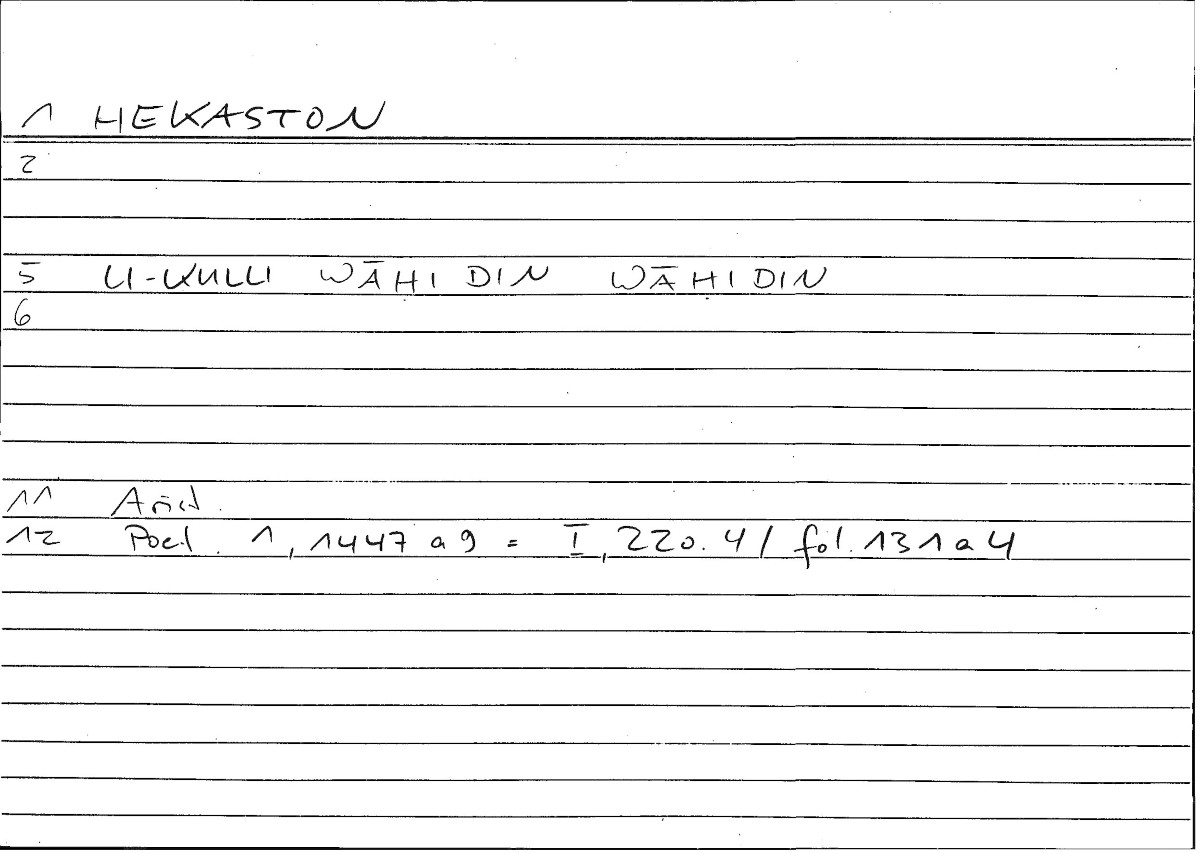 1 HEKASTON
2
5 LI-KULLI WĀḤIDIN WĀḤIDIN
6
11 Arist.
12 Poet. 1, 1447 a 9 = I, 220.4 / fol. 131 a 4